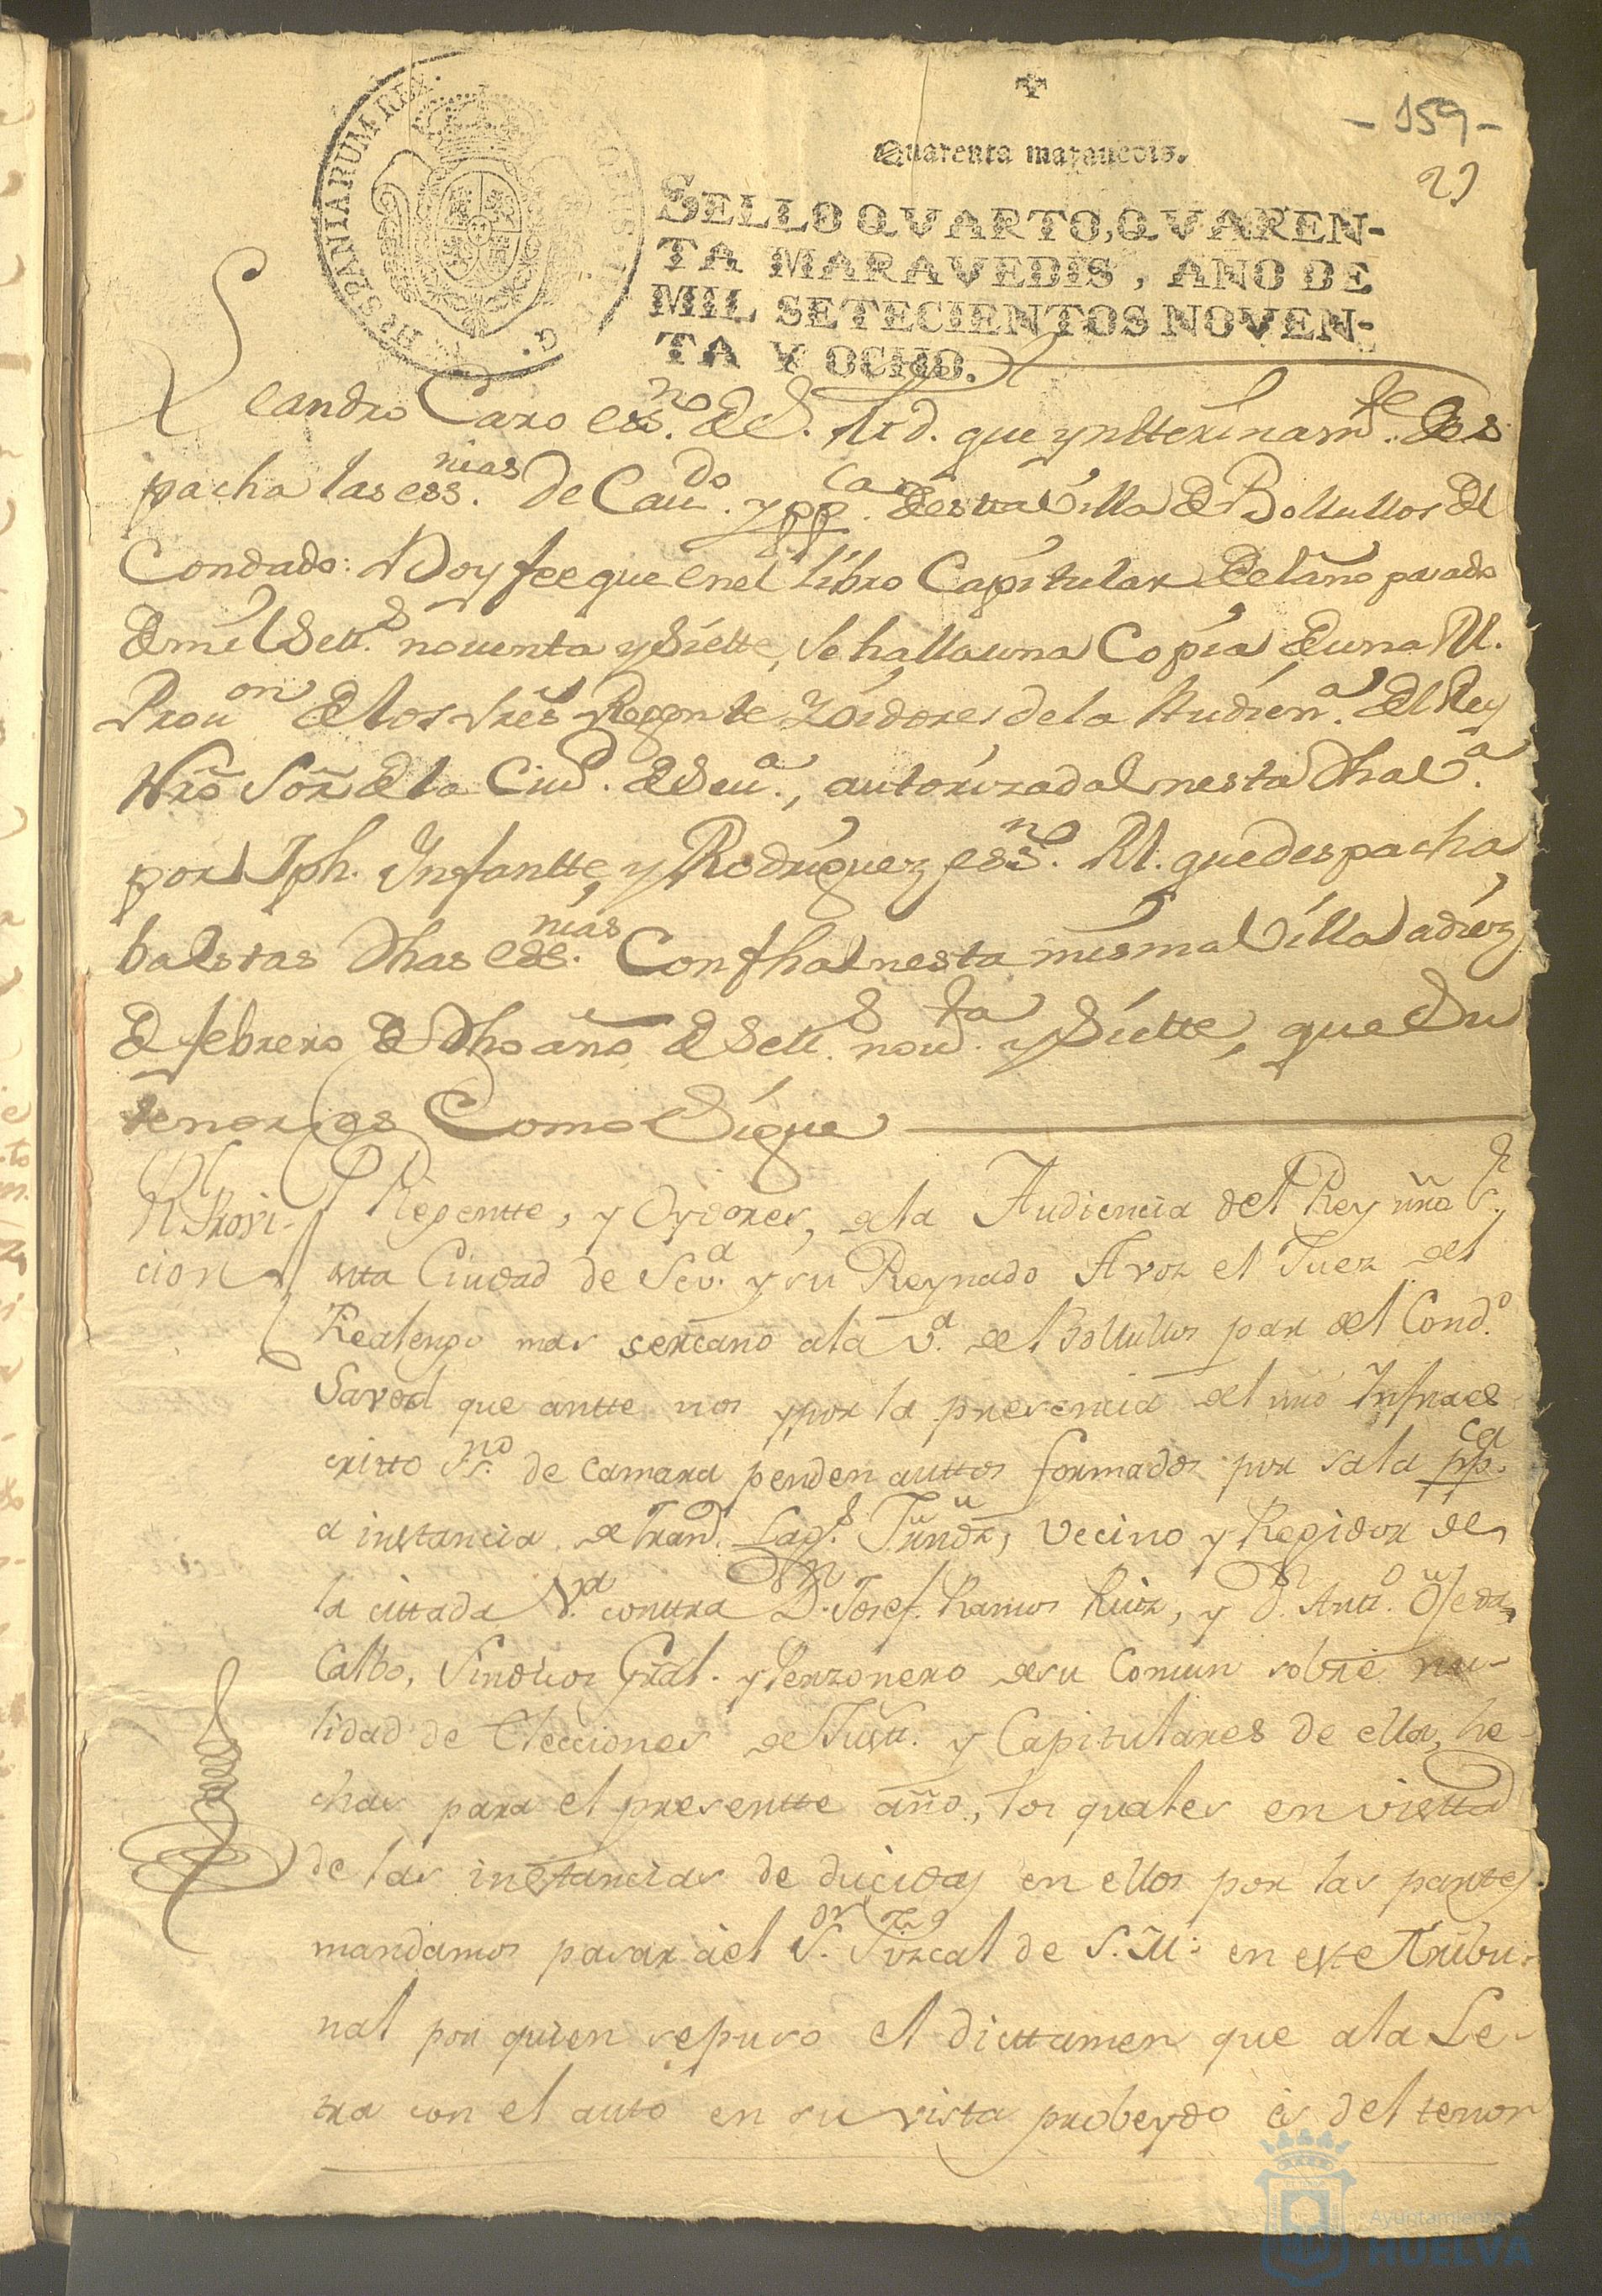 - 159 -
Quarenta marauedis.
29
SELLO QVARTO, QVAREN-
TA MARAVEDIS, AÑO DE
MIL SETECIENTOS NOVEN-
TA Y OCHO.
HISPANIARUM REX
Leandro Caro ess.no de S. M.d. que ynterinam.te des
pacha las ess.nias de Cau.do y pp.cas de esta Villa de Bollullos del
Condado: Doy fee que en el libro Capitular del año pasado
de mil Sett.s nouenta y Siette, se halla una Copia de una Rl.
Prou.on de los Sres Regente y Oidores de la Audien.a del Rey
Nro Sor de la Ciud. de Seu.a, autorizada en esta dha V.a
por Jph. Infantte y Rodriguez ess.no Rl. que despacha
ba estas dhas ess.nias Con fha en esta misma Villa a diez
de febrero de dho año de Sett.s nou.ta y Siette, que su
tenor es Como Sigue
Rl Provi-
cion
Regentte, y Oydores, de la Audiencia del Rey nño S.r
en tta Ciudad de Sev.a y su Reynado A vos el Juez del
Realengo mas sercano a la V.a de Bollullos par del Cond.o
Saved que antte nos y por la presencia del nño Infraes
critto Ss.no de camara penden auttos formados por sala pp.ca
a instancia de Fran.co Lag.s vecino y Regidor de
la cittada V.a conttra D.n Josef. Ramos Ruiz, y D.n Antt.o Ojeda
Calbo, Sindicos Gral. y Perzonero de su Comun sobre nu-
lidad de Elecciones de Justt.a y Capitulares de ella, he-
chas para el presentte año, los quales en vistta
de las instancias de ducidas en ellos por las partes
mandamos pasar a el S.or Fizcal de S. M. en este Tribu-
nal por quien se puso el dicttamen que a la Le-
tra con el auto en su vista probeydo es del tenor
Ayuntamiento de
HUELVA